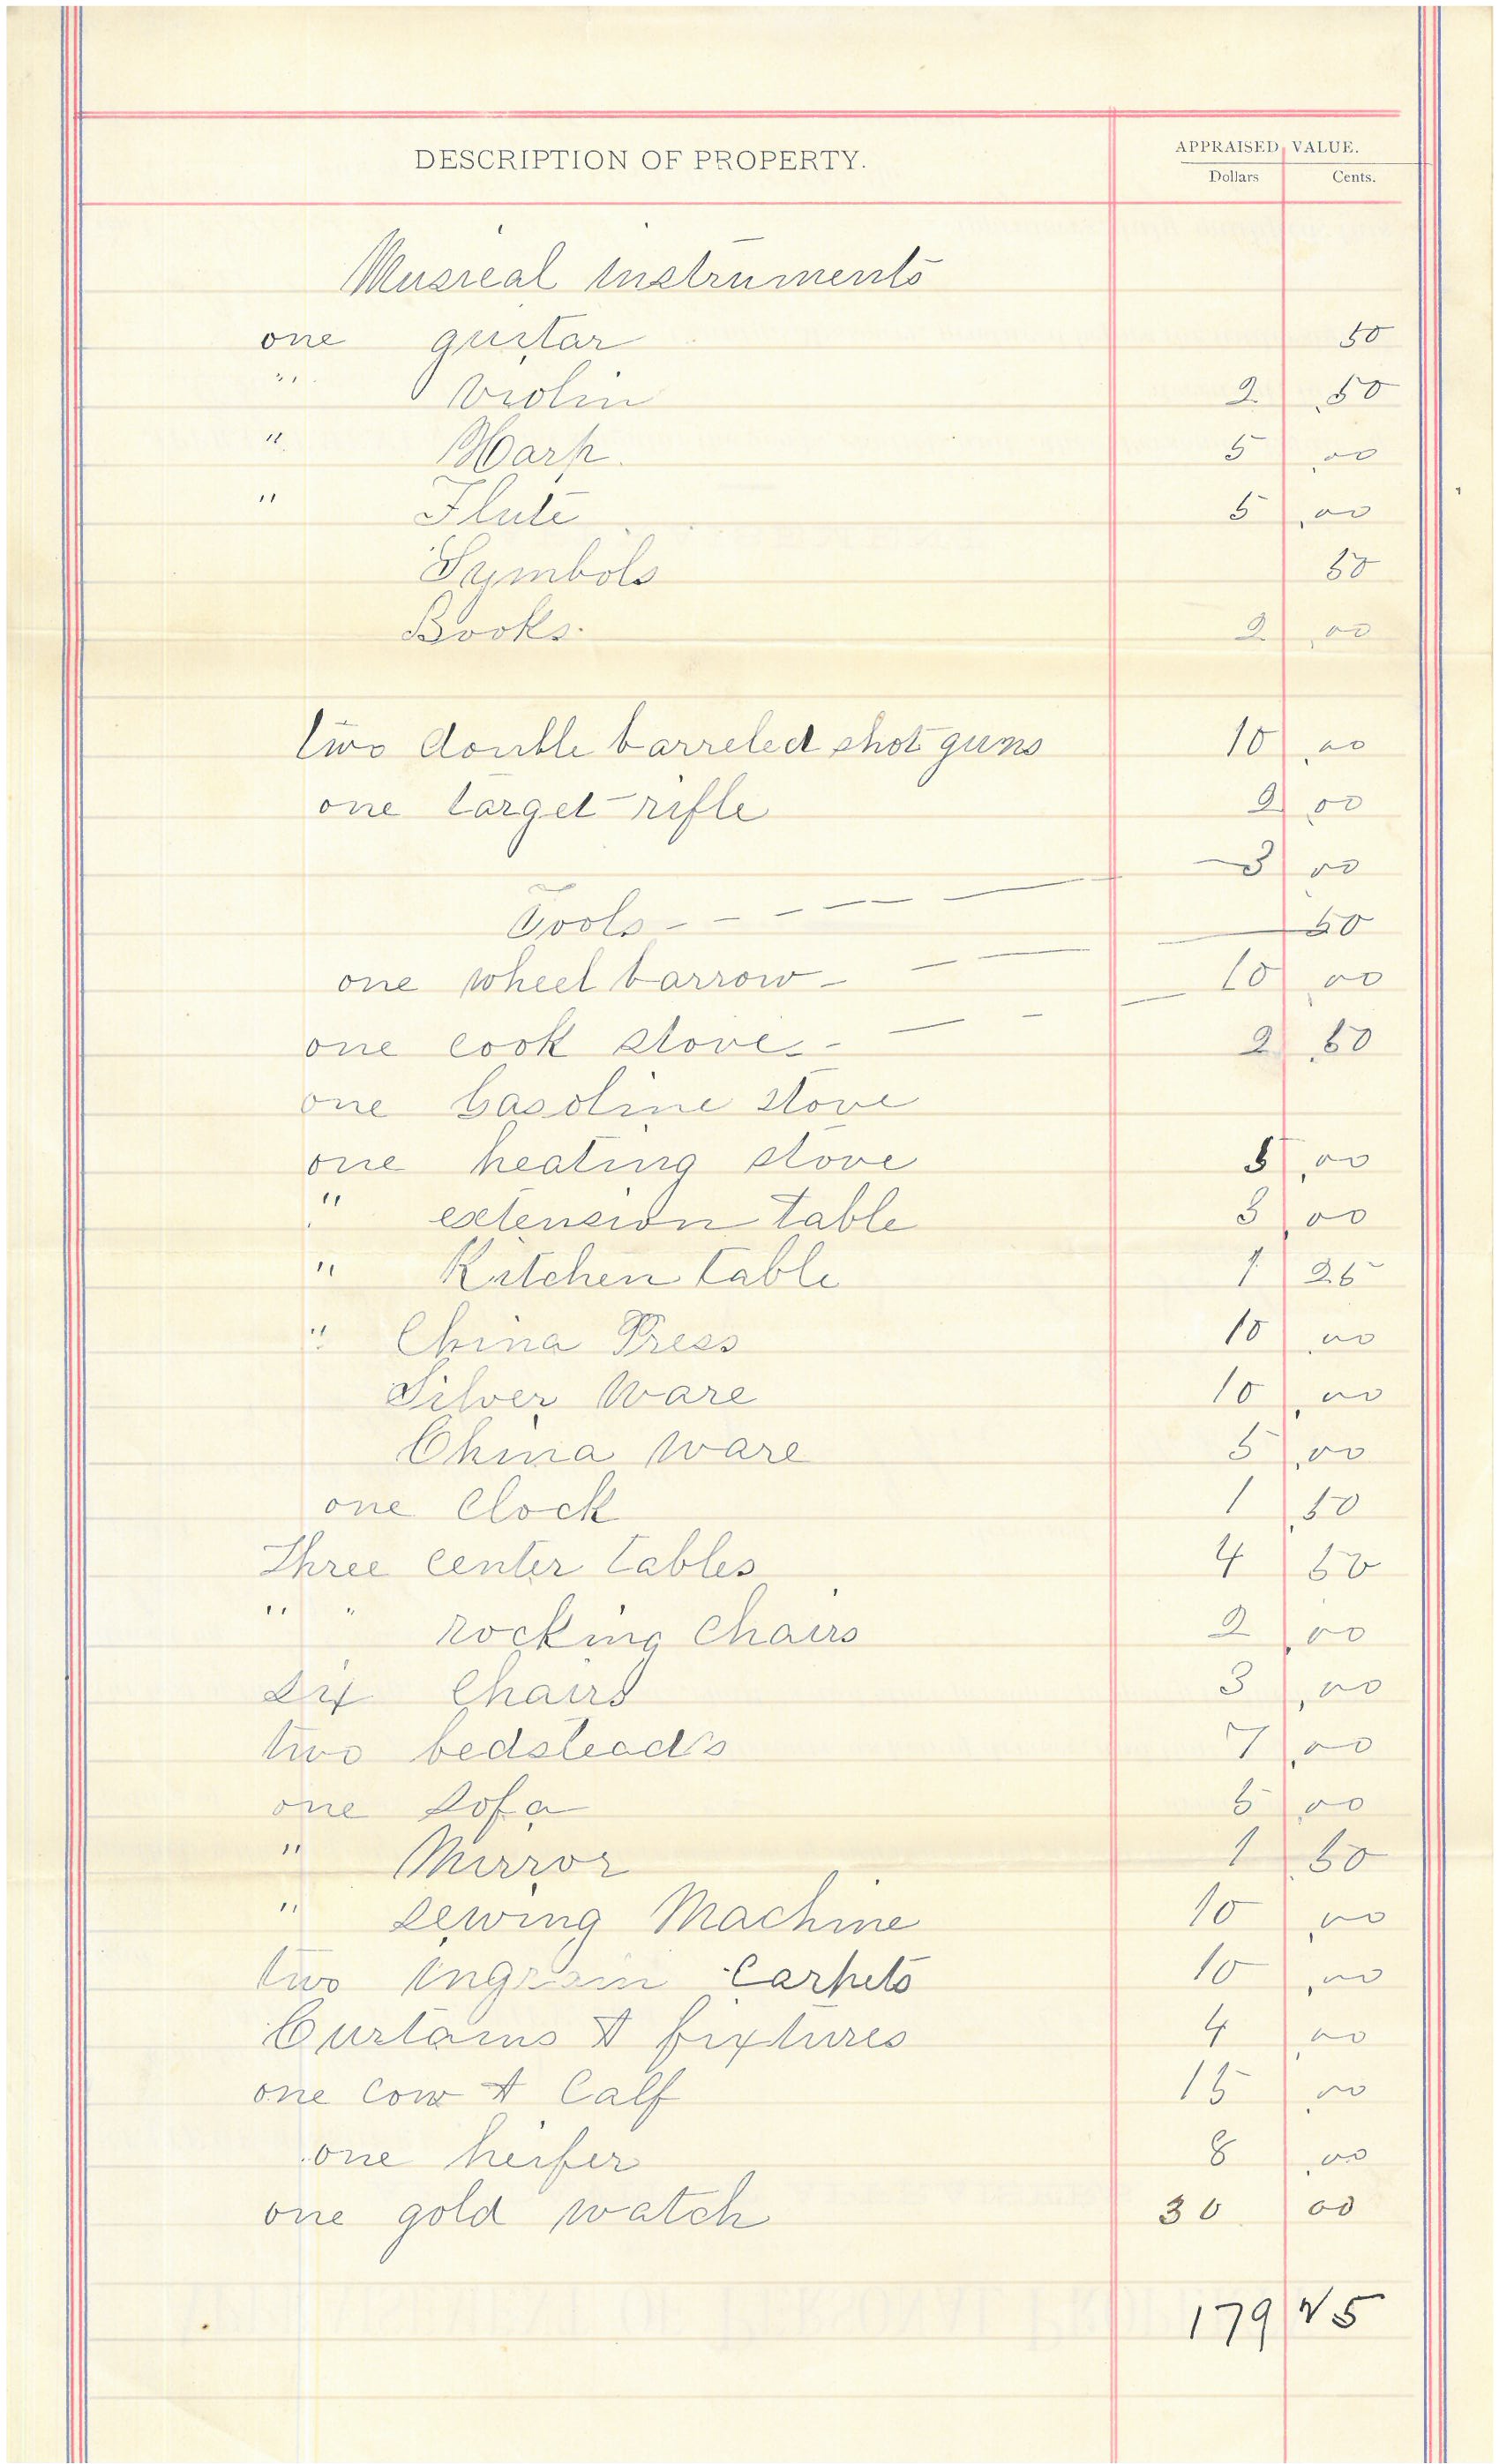 DESCRIPTION OF PROPERTY.
APPRAISED VALUE.
Dollars Cents.
Musical Instruments
one guitar 50
" Violin 2 .50
" Harp. 5 .00
" Flute 5 .00
Symbols 50
Books. 2 .00
two double barreled shot guns 10 .00
one target rifle 2 00
Tools - - - - - 3 00
one wheel barrow - - - 50
one cook stove - - - 10 00
one Gasoline stove 2 .50
one heating stove 5 .00
" extension table 3 .00
" Kitchen table 1 25
" China Press 10 .00
Silver Ware 10 .00
China ware 5 .00
one Clock 1 .50
Three center tables 4 50
" " rocking Chairs 2 .00
six Chairs 3 .00
two bedsteads 7 .00
one sofa 5 .00
" Mirror 1 .50
" sewing Machine 10 .00
two Ingrain Carpets 10 .00
Curtains & fixtures 4 .00
one cow & Calf 15 .00
one heifer 8 .00
one gold watch 30 00
179 25